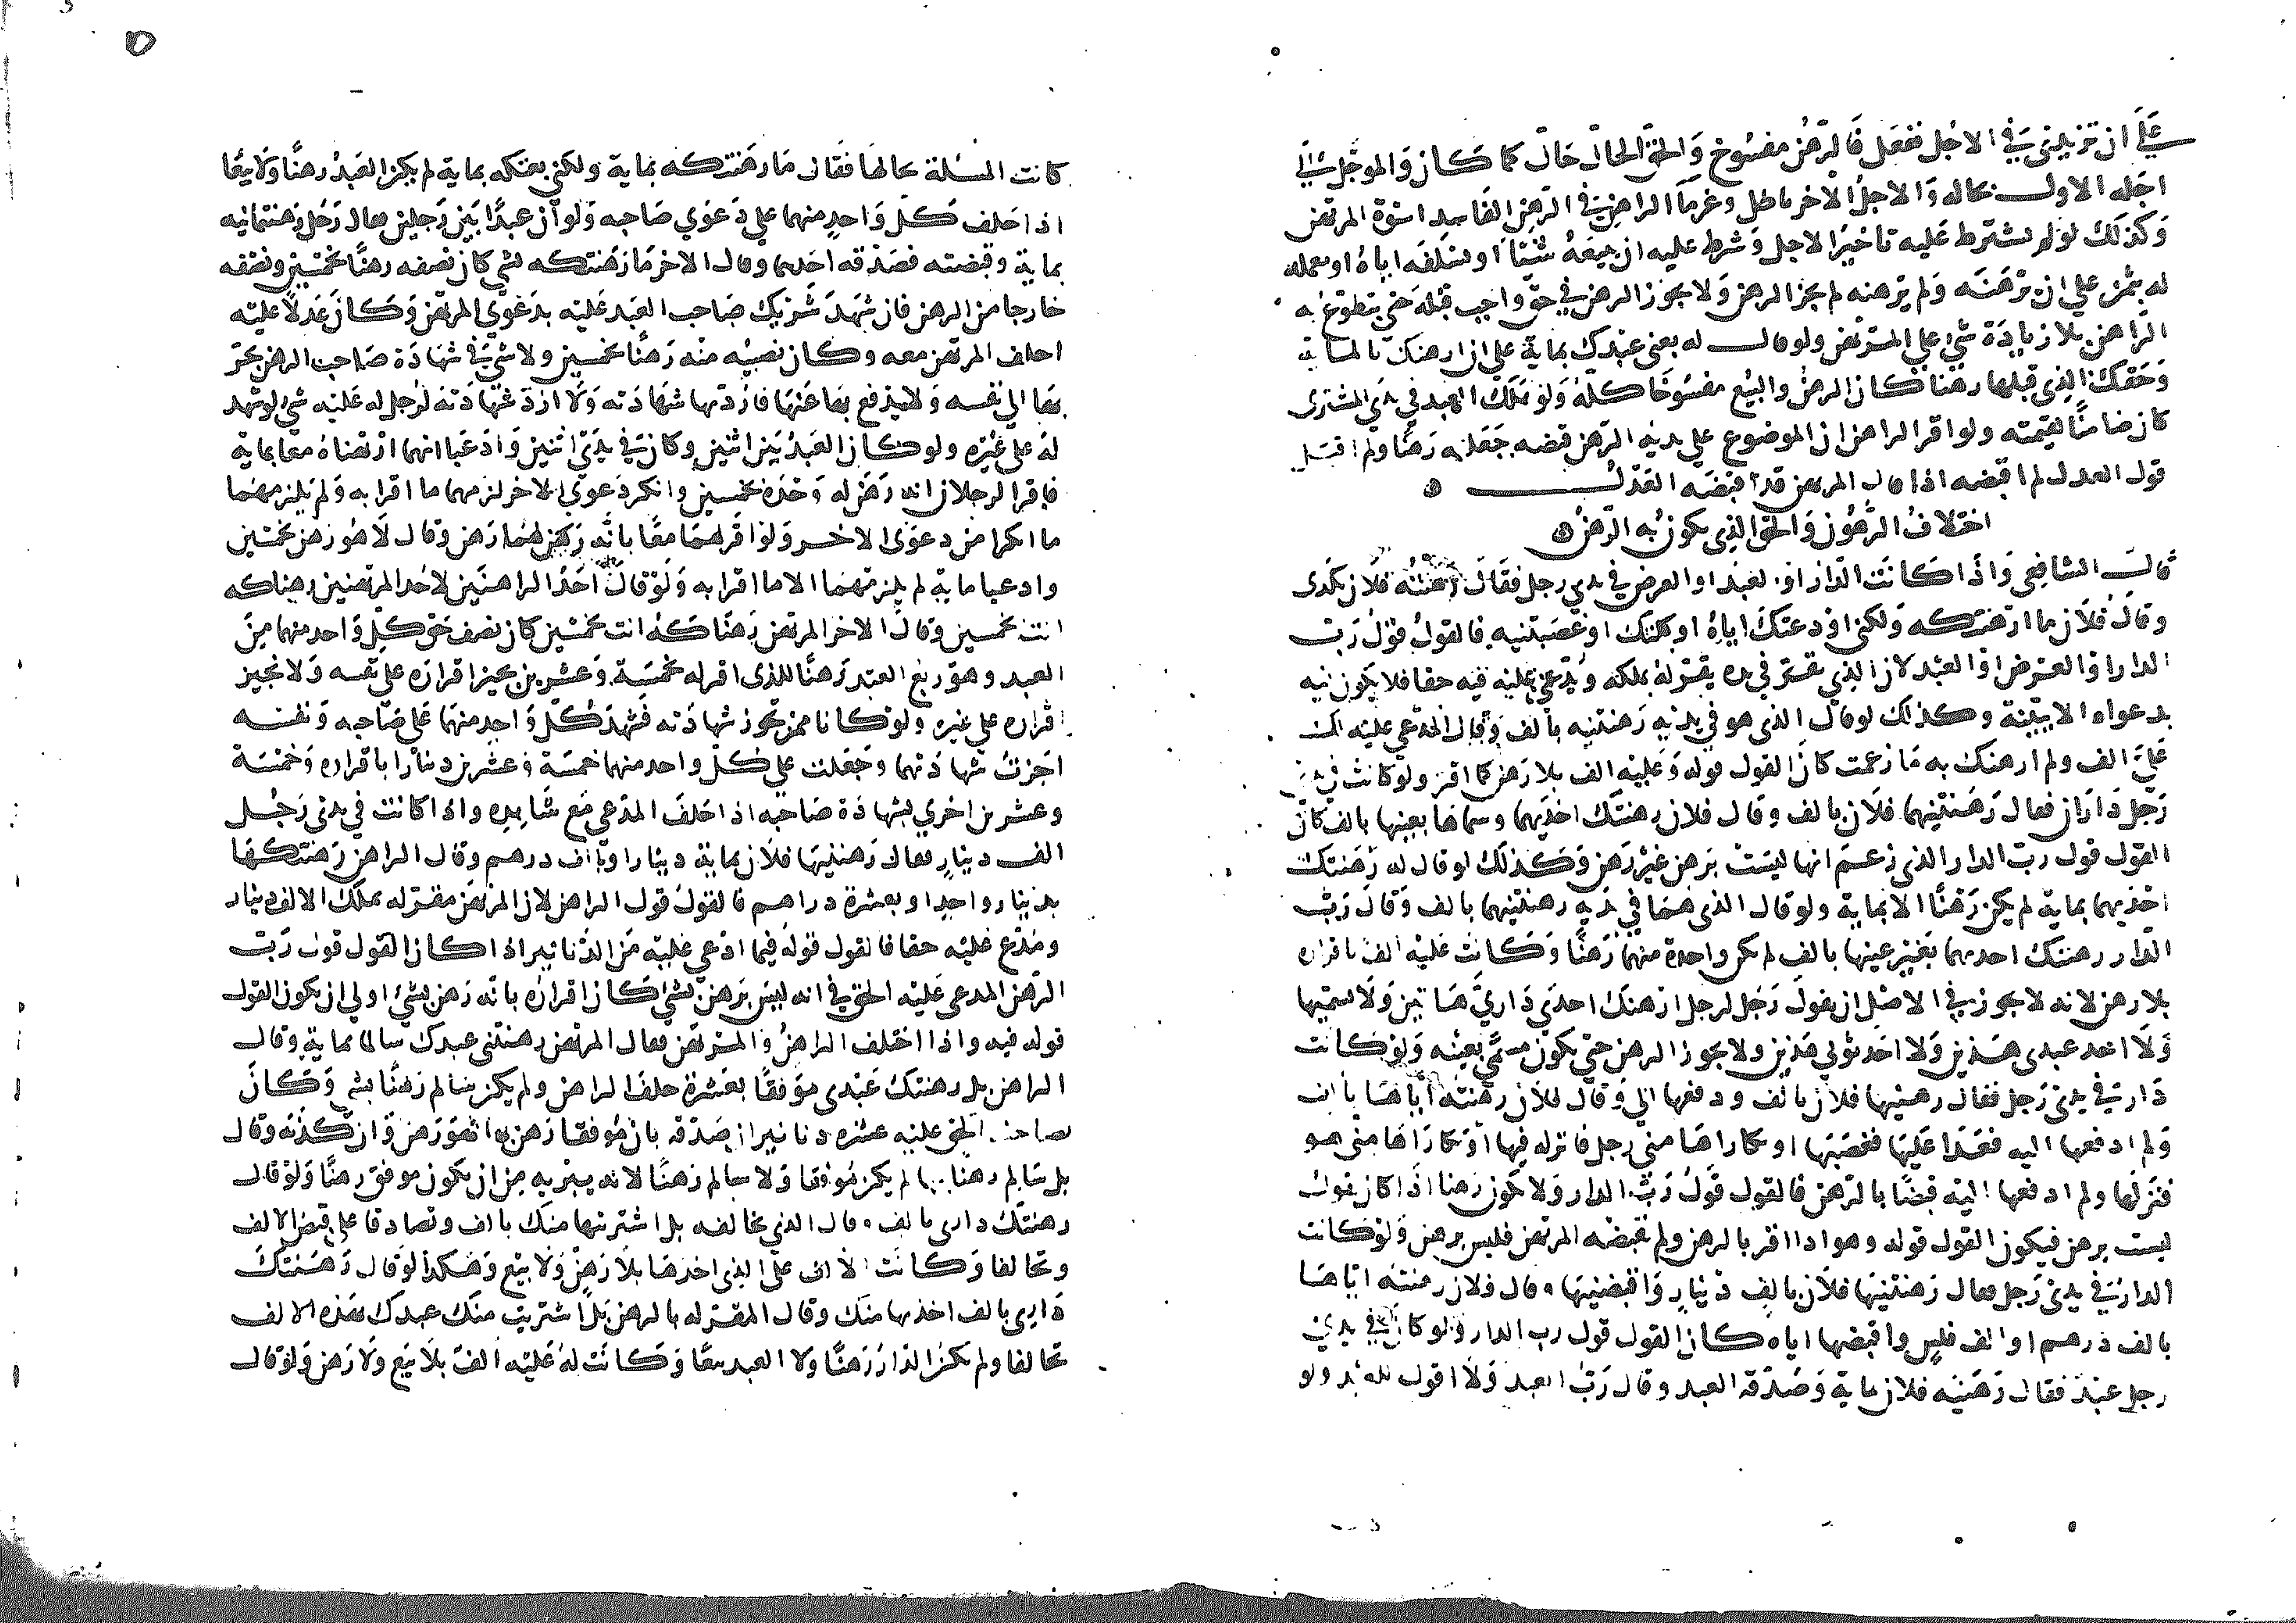 علي ان تزيدني في الاجل ففعل فالرهن مفسوخ والحق الحال حال كما كان والموجل الي
اجله الاول بحاله والاجل الاخر باطل وغرما الراهن في الرهن الفاسد اسوة المرتهن
وكذلك لو لم يشترط عليه تاخير الاجل وشرط عليه ان يبيعه شيئا او يسلفه اياه او يعمل
له بثمن علي ان يرهنه ولم يرهنه لم يجز الرهن ولا يجوز الرهن في حق واجب قبله حتي يتطوع به
الراهن بلا زيادة شي علي المرتهن ولو قال له بعني عبدك بماية علي ان ارهنك بالماية
وحقك الذي قبلها رهنا كان الرهن والبيع مفسوخا كله ولو هلك العبد في يدي المشتري
كان ضامنا لقيمته ولو اقر الراهن ان الموضوع علي يديه الرهن قبضه جعلته رهنا ولم اقبل
قول العدل لم اقبضه اذا قال المرتهن قد قبضه العدل
اختلاف الرهون والحق الذي يكون به الرهن
قال الشافعي واذا كانت الدار او العبد او العرض في يدي رجل فقال رهنته فلان بكذي
وقال فلان ما ارهنتكه ولكني اودعتك اياه او وكلتك او غصبتنيه فالقول قول رب
الدار او العرض او العبد لان الذي يقر في يده يقر له بملكه ويدعي عليه فيه حقا فلا يكون فيه
بدعواه الا ببينة وكذلك لو قال الذي هو في يديه رهنتنيه بالف وقال المدعي عليه لك
علي الف ولم ارهنك به ما زعمت كان القول قوله وعليه الف بلا رهن كما اقر ولو كانت في يدي
رجل داران فقال رهنتنيهما فلان بالف وقال فلان رهنتك احديهما وسماها بعينها بالف كان
القول قول رب الدار الذي زعم انها ليست برهن غير رهن وكذلك لو قال له رهنتك
احديهما بماية لم يكن رهنا الا بماية ولو قال الذي هما في يديه رهنتنيهما بالف وقال رب
الدار رهنتك احديهما بغير عينها بالف لم تكن واحدة منهما رهنا وكانت عليه الف باقراره
بلا رهن لانه لا يجوز في الاصل ان يقول رجل لرجل ارهنك احدي داري هاتين ولا يسميها
ولا احد عبدي هذين ولا احد ثوبي هذين ولا يجوز الرهن حتي يكون مسمي بعينه ولو كانت
دار في يدي رجل فقال رهنيها فلان بالف ودفعها الي وقال فلان رهنته اياها بالف
ولم ادفعها اليه فعدا عليها فغصبها او تكاراها مني رجل فانزله فيها او تكاراها مني هو
فنزلها ولم ادفعها اليه قبضا بالرهن فالقول قول رب الدار ولا يكون رهنا اذا كان يقول
ليست برهن فيكون القول قوله وهو اذا اقر بالرهن ولم يقبضه المرتهن فليس برهن ولو كانت
الدار في يدي رجل فقال رهنتنيها فلان بالف دينار واقبضنيها وقال فلان رهنته اياها
بالف درهم او الف فلس واقبضها اياه كان القول قول رب الدار ولو كان في يدي
رجل عبد فقال رهنيه فلان بماية وصدقه العبد وقال رب العبد ولا قول للعبد ولو
كانت المسئلة بحالها فقال ما رهنتكه بماية ولكني بعتكه بماية لم يكن العبد رهنا ولا بيعا
اذا حلف كل واحد منهما علي دعوي صاحبه ولو ان عبدا بين رجلين فقال رجل رهنتمانيه
بماية وقبضته فصدقه احدهما وقال الاخر ما رهنتكه بشي كان نصفه رهنا بخمسين ونصفه
خارجا من الرهن فان شهد شريك صاحب العبد عليه بدعوي المرتهن وكان عدلا عليه
احلف المرتهن معه وكان نصيبه منه رهنا بخمسين ولا شي في شهادة صاحب الرهن يجر
بها الي نفسه ولا يدفع بها عنها فارد بها شهادته ولا ارد شهادته لرجل له عليه شي لو شهد
له علي غيره ولو كان العبد بين اثنين وكان في يدي اثنين وادعيا انهما ارتهناه معا بماية
فاقر الرجلان انه رهن له وحده بخمسين وانكر دعوي الاخر لزمهما ما اقرا به ولم يلزمهما
ما انكرا من دعوي الاخر ولو اقرا لهما معا بانه لهما رهن وقال لا هو رهن بخمسين
وادعيا ماية لم يلزمهما الا ما اقرا به ولو قال احد الراهنين لاحد المرتهنين رهناكه
انت بخمسين وقال الاخر للمرتهن رهناكه انت بخمسين كان نصف حق كل واحد منهما من
العبد وهو ربع العبد رهنا للذي اقر له بخمسة وعشرين يجيز اقراره علي نفسه ولا نجيز
اقراره علي غيره ولو كانا ممن تجوز شهادته فشهد كل واحد منهما علي صاحبه ونفسه
اجزت شهادتهما وجعلت علي كل واحد منهما خمسة وعشرين دينارا باقراره وخمسة
وعشرين اخري بشهادة صاحبه اذا حلف المدعي مع شاهده واذا كانت في يدي رجل
الف دينار فقال رهننيها فلان بماية دينار او بالف درهم وقال الراهن رهنتكها
بدينار واحد او بعشرة دراهم فالقول قول الراهن لان المرتهن مقر له بملك الالف دينار
ومدع عليه حقا فالقول قوله فيما ادعي عليه من الدنانير اذا كان القول قول رب
الرهن المدعي عليه الحق في انه ليس برهن بشي كان اقراره بانه رهن بشي اولي ان يكون القول
قوله فيه واذا اختلف الراهن والمرتهن فقال المرتهن رهنتني عبدك سالما بماية وقال
الراهن بل رهنتك عبدي موفقا بعشرة حلف الراهن ولم يكن سالم رهنا بشي وكان
لصاحب الحق عليه عشره دنانير ان صدقه بان موفقا رهن بها فهو رهن وان كذبه وقال
بل سالم رهنا بها لم يكن موفقا ولا سالم رهنا لانه يبريه من ان يكون موفق رهنا ولو قال
رهنتك داري بالف وقال الذي يخالفه بل اشتريتها منك بالف وتصادقا علي قبض الالف
وتحالفا وكانت الالف علي الذي اخذها بلا رهن ولا بيع وهكذا لو قال رهنتك
داري بالف اخذتها منك وقال المقر له بالرهن بل اشتريت منك عبدك بهذه الالف
تحالفا ولم تكن الدار رهنا ولا العبد بيعا وكانت له عليه الف بلا بيع ولا رهن ولو قال